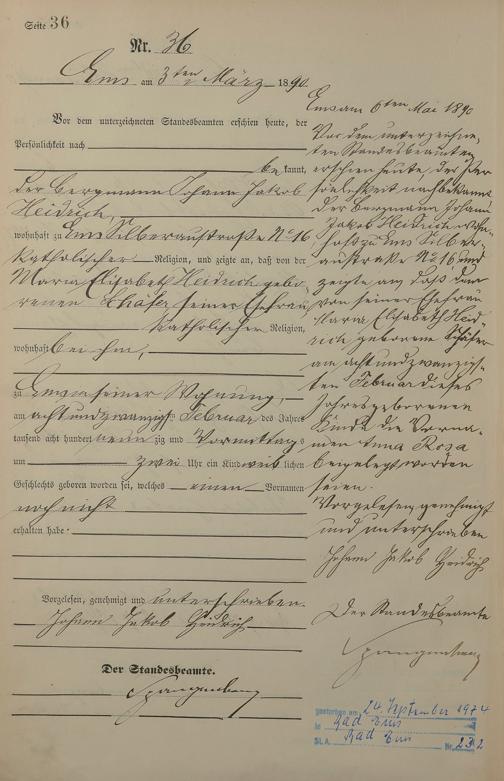 Seite 36
Nr. 36
Ems am 3ten März 1890
Vor dem unterzeichneten Standesbeamten erschien heute, der
Persönlichkeit nach
bekannt,
der Bergmann Johann Jakob
Heidrich,
wohnhaft zu Ems Silberaustraße No 16
katholischer Religion, und zeigte an, daß von der
Maria Elisabeth Heidrich gebo
renen Schäfer seiner Ehefrau
katholischer Religion,
wohnhaft bei ihm,
zu Ems in seiner Wohnung,
am achtundzwanzigst Februar des Jahres
tausend acht hundert neun zig und Vormittags
um zwei Uhr ein Kind weiblichen
Geschlechts geboren worden sei, welches einen Vornamen
noch nicht
erhalten habe
Vorgelesen, genehmigt und unterschrieben.
Johann Jakob Heidrich
Der Standesbeamte.
Spangenberg
Ems am 6ten Mai 1890
Vor dem unterzeichne-
ten Standesbeamten
erschien heute, der Per
sönlichkeit nach bekannt
der Bergmann Johann
Jakob Heidrich wohn-
haft zu Ems Silber-
austraße No 16 und
zeigte an daß dem
von seiner Ehefrau
Maria Elisabeth Heid
rich geborene Schäfer
am achtundzwanzigs-
ten Februar dieses
Jahres geborenen
Kinde die Vorna-
men Anna Rosa
beigelegt worden
seien.
Vorgelesen, genehmigt
und unterschrieben
Johann Jakob Heidrich
Der Standesbeamte
Spangenberg
gestorben am 24. September 1974
in Bad Ems
St. A. Bad Ems Nr. 232